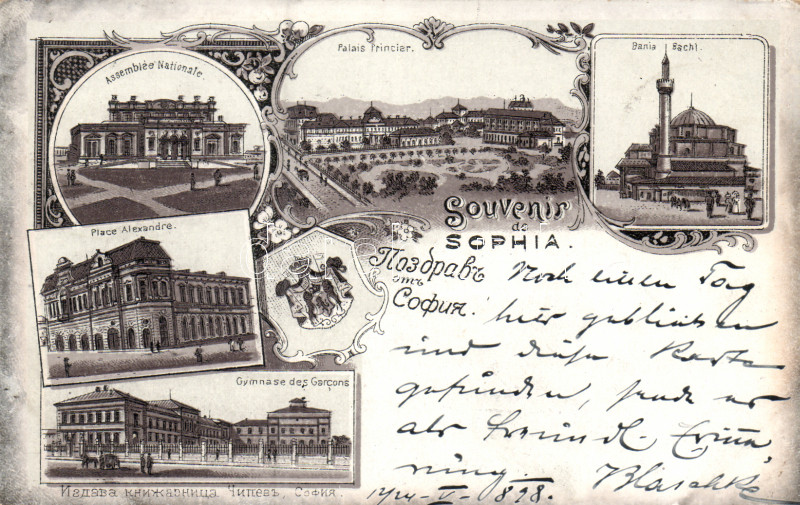 Assemblée Nationale.
Palais Princier.
Bania Bachi.
Place Alexandre.
Souvenir
de
SOPHIA.
Поздравъ
отъ
София.
Gymnase des Garçons
Издава книжарница Чипевъ, София.
Noch einen Tag
hier geblieben
und diese Karte
gefunden, sende es
als freundl. Erinne-
rung.
Blaschke
V 898.